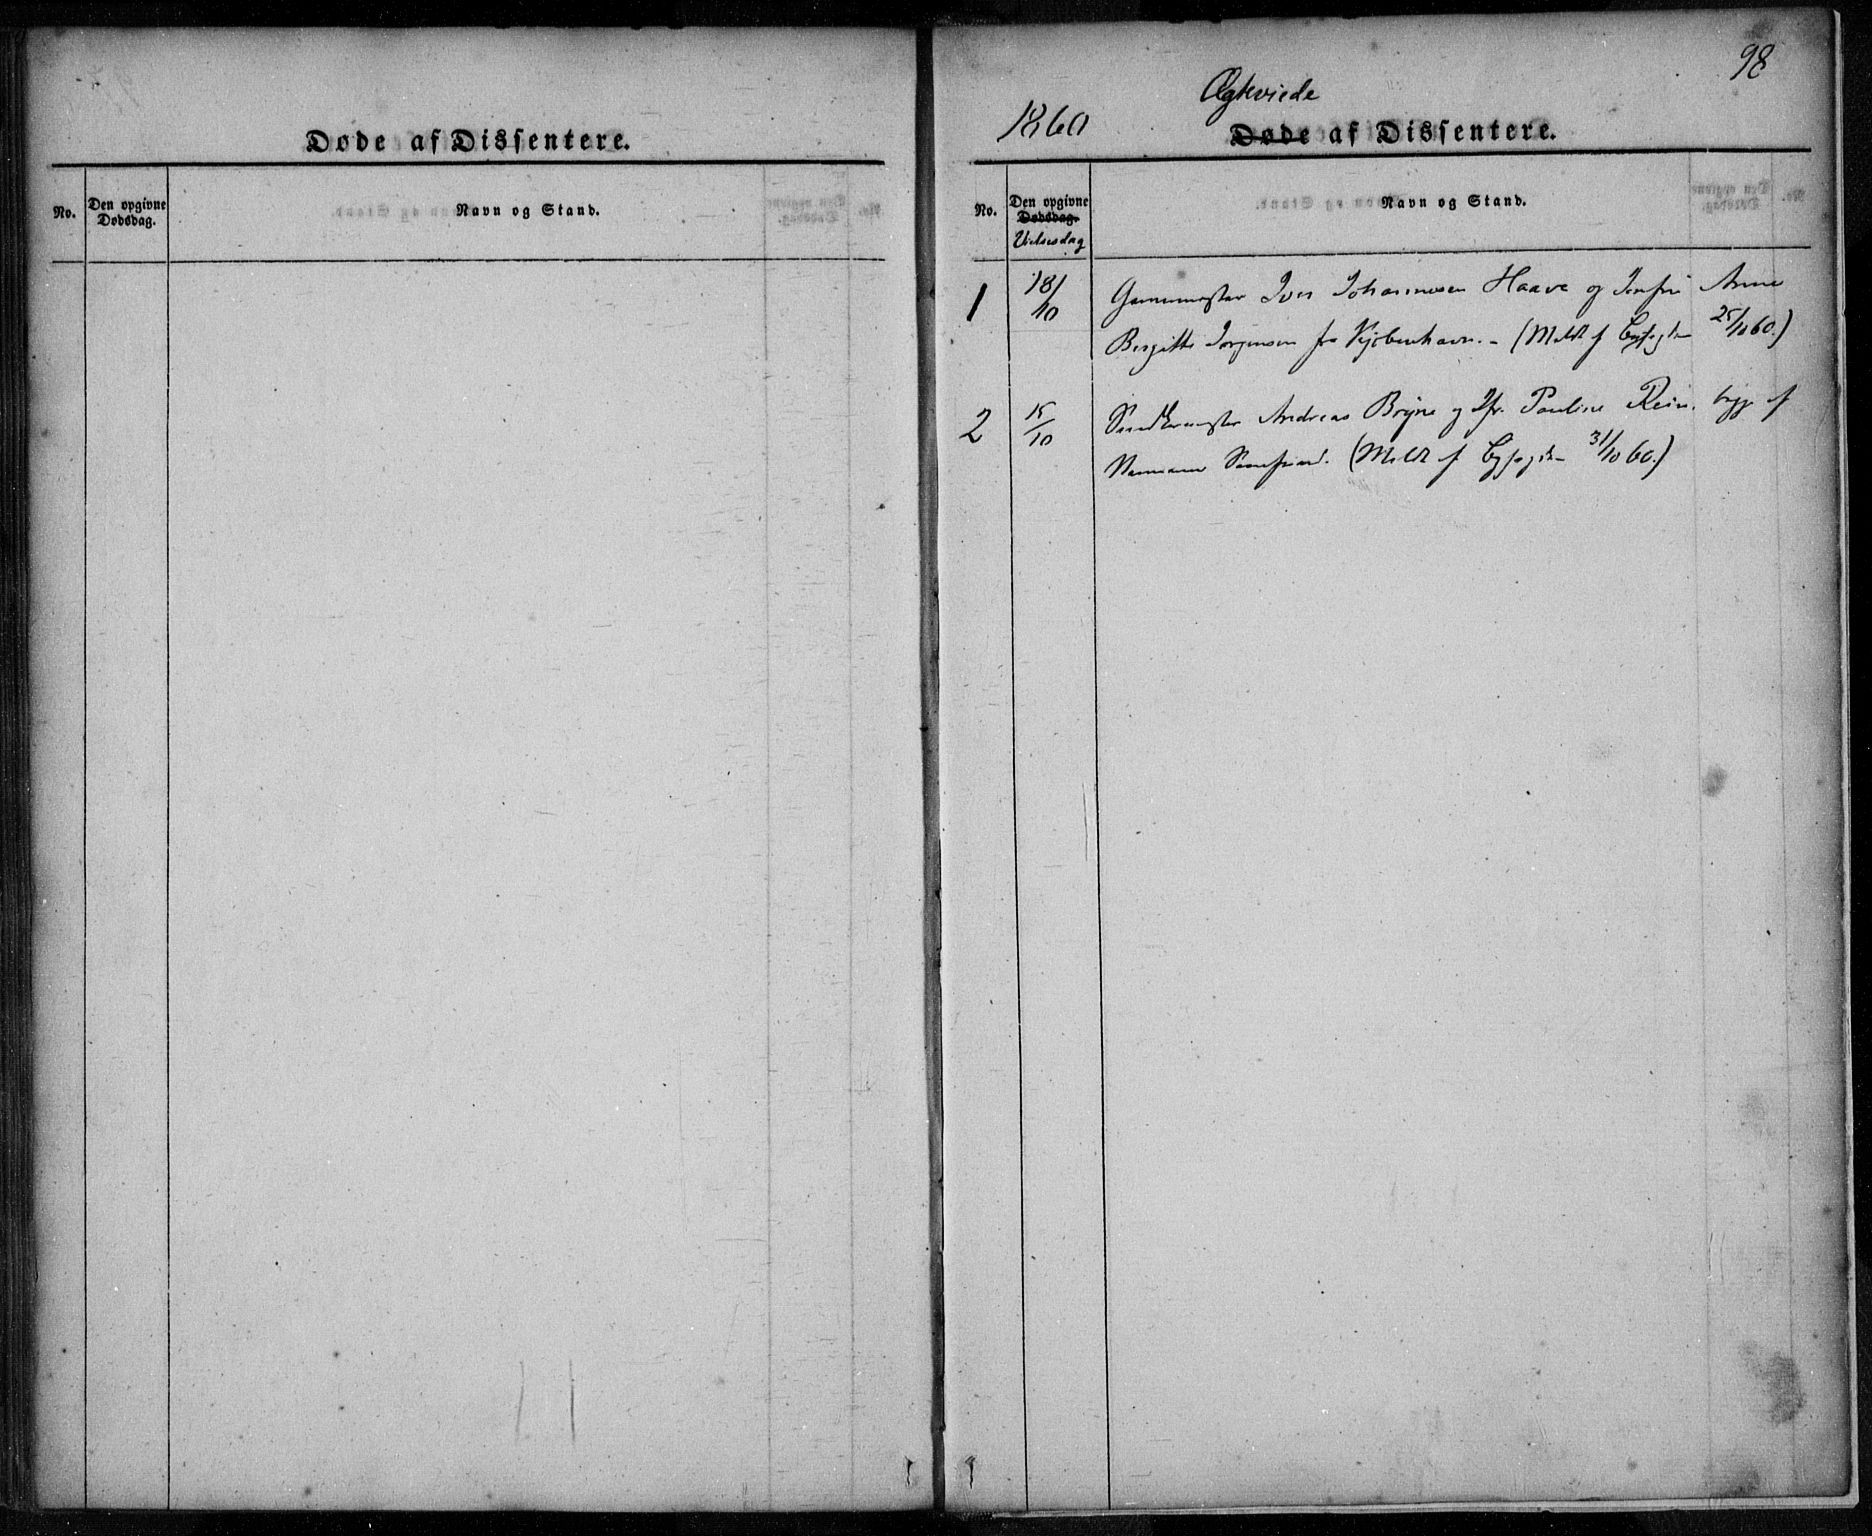 Døde af Dissentere.
No.
Den opgivne
Dødsdag.
Navn og Stand.
98
Ægteviede
1860
Døde af Dissentere.
No.
Den opgivne
Dødsdag.
Vielsesdag
Navn og Stand.
1 18/10 Iver Johannesen Haave og Jomfru Anne
Birgitte Jørgensen fra Kjøbenhavn. - (Meldt af Byfogden 25/10 60.)
2 15/10 Andreas Bryne og Jfr. Pauline Rein. begge af
(Meldt af Byfogden 31/10 60.)